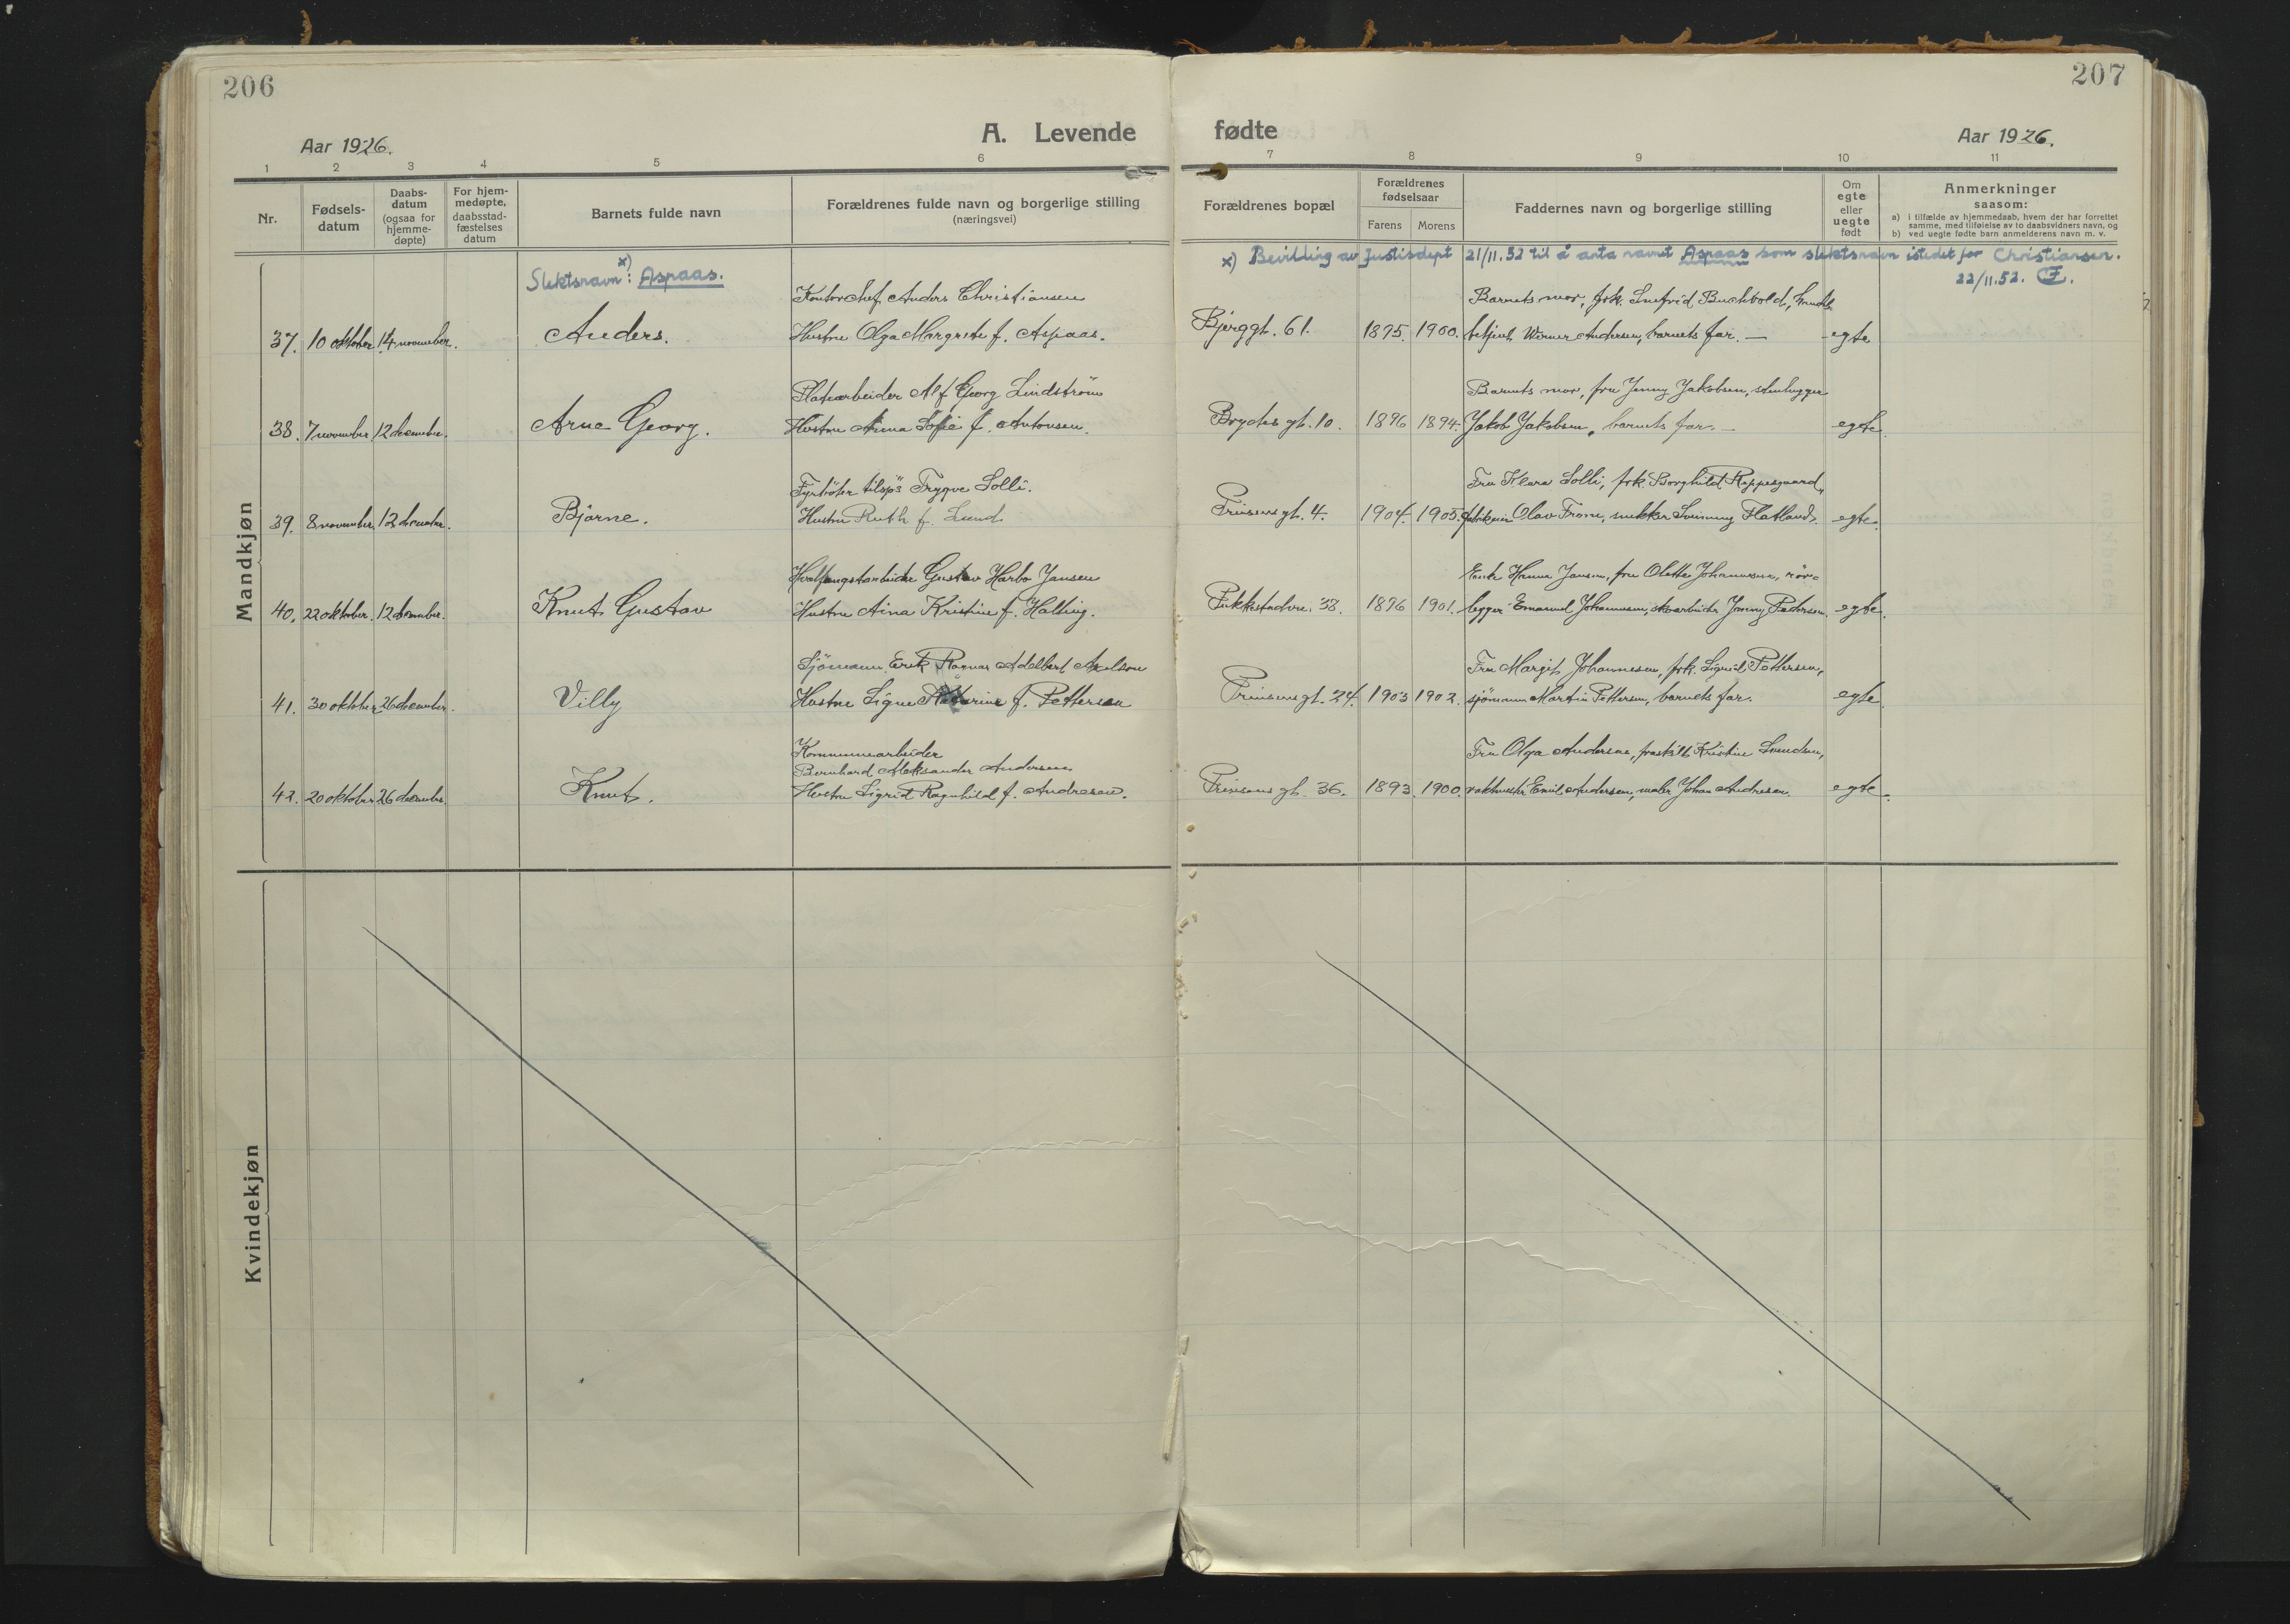 206
Aar 1926.
A. Levende
1 2 3 4 5 6
Nr.
Fødsels-
datum
Daabs-
datum
(ogsaa for
hjemme-
døpte)
For hjem-
medøpte,
daabsstad-
fæstelses
datum
Barnets fulde navn
Forældrenes fulde navn og borgerlige stilling
(næringsvei)
Mandkjøn
x)
Slektsnavn: Aspaas.
Kontorchef Anders Christiansen
37. 10 oktober 14 november. Anders. Hustru Olga Margrete f. Aspaas.
Platearbeider Alf Georg Lindström
38. 7 november 12 december. Arne Georg. Hustru Anna Sofie f. Antonsen.
Fyrbøter Trygve Solli.
39. 8 november. 12 december. Bjarne. Hustru Ruth f. Lund
Hvalfangstarbeider Gustav Harbo Jansen
40. 22 oktober. 12 december. Knut Gustav Hustru Aina Kristine f. Halling.
Sjömann Erik Ragnar Adelbert Axelson
41. 30 oktober 26 december. Villy Hustru Signe Katarine f. Pettersen
Kommunearbeider
Bernhard Aleksander Andersen
42. 20 oktober 26 december. Knut. Hustru Sigrid Ragnhild f. Andresen.
Kvindekjøn
207
fødte
Aar 1926.
7 8 9 10 11
Forældrenes bopæl
Forældrenes
fødselsaar
Farens Morens
Faddernes navn og borgerlige stilling
Om
egte
eller
uegte
født
Anmerkninger
saasom:
a) i tilfælde av hjemmedaab, hvem der har forrettet
samme, med tilføielse av to daabsvidners navn, og
b) ved uegte fødte barn anmelderens navn m. v.
x) Bevilling av Justisdept 21/11.52 til å anta navnet Aspaas som slektsnavn istedet for Christiansen.
22/11.52.
Barnets mor, frk. Snefrid Buchhold,
Bjerggt. 61. 1895. 1900. betjent Werner Andersen, barnets far. — egte
Barnets mor, fru Jenny Jakobsen, stenhugger
Brydes gt. 10. 1896 1894. Jakob Jakobsen, barnets far. — egte.
Fru Klara Solli, frk. Borghild Reppesgaard,
Prinsens gt. 4. 1904. 1905. Olav Trone, snekker Flatland. egte.
Enke Hanna Jansen, fru Olette Johannesen, rör-
Pukkestadvn. 38. 1896 1901. legger Emanuel Johannesen, skoarbeider Jonny Pedersen. egte.
Fru Margit Johannesen, frk. Sigrid Pettersen,
Prinsensgt. 24. 1903 1902. sjömann Martin Pettersen, barnets far. egte.
Fru Olga Andersen, fraskilt Kristine Svendsen,
Prinsens gt. 36. 1893. 1900. vaktmester Emil Andersen, maler Johan Andresen. egte.